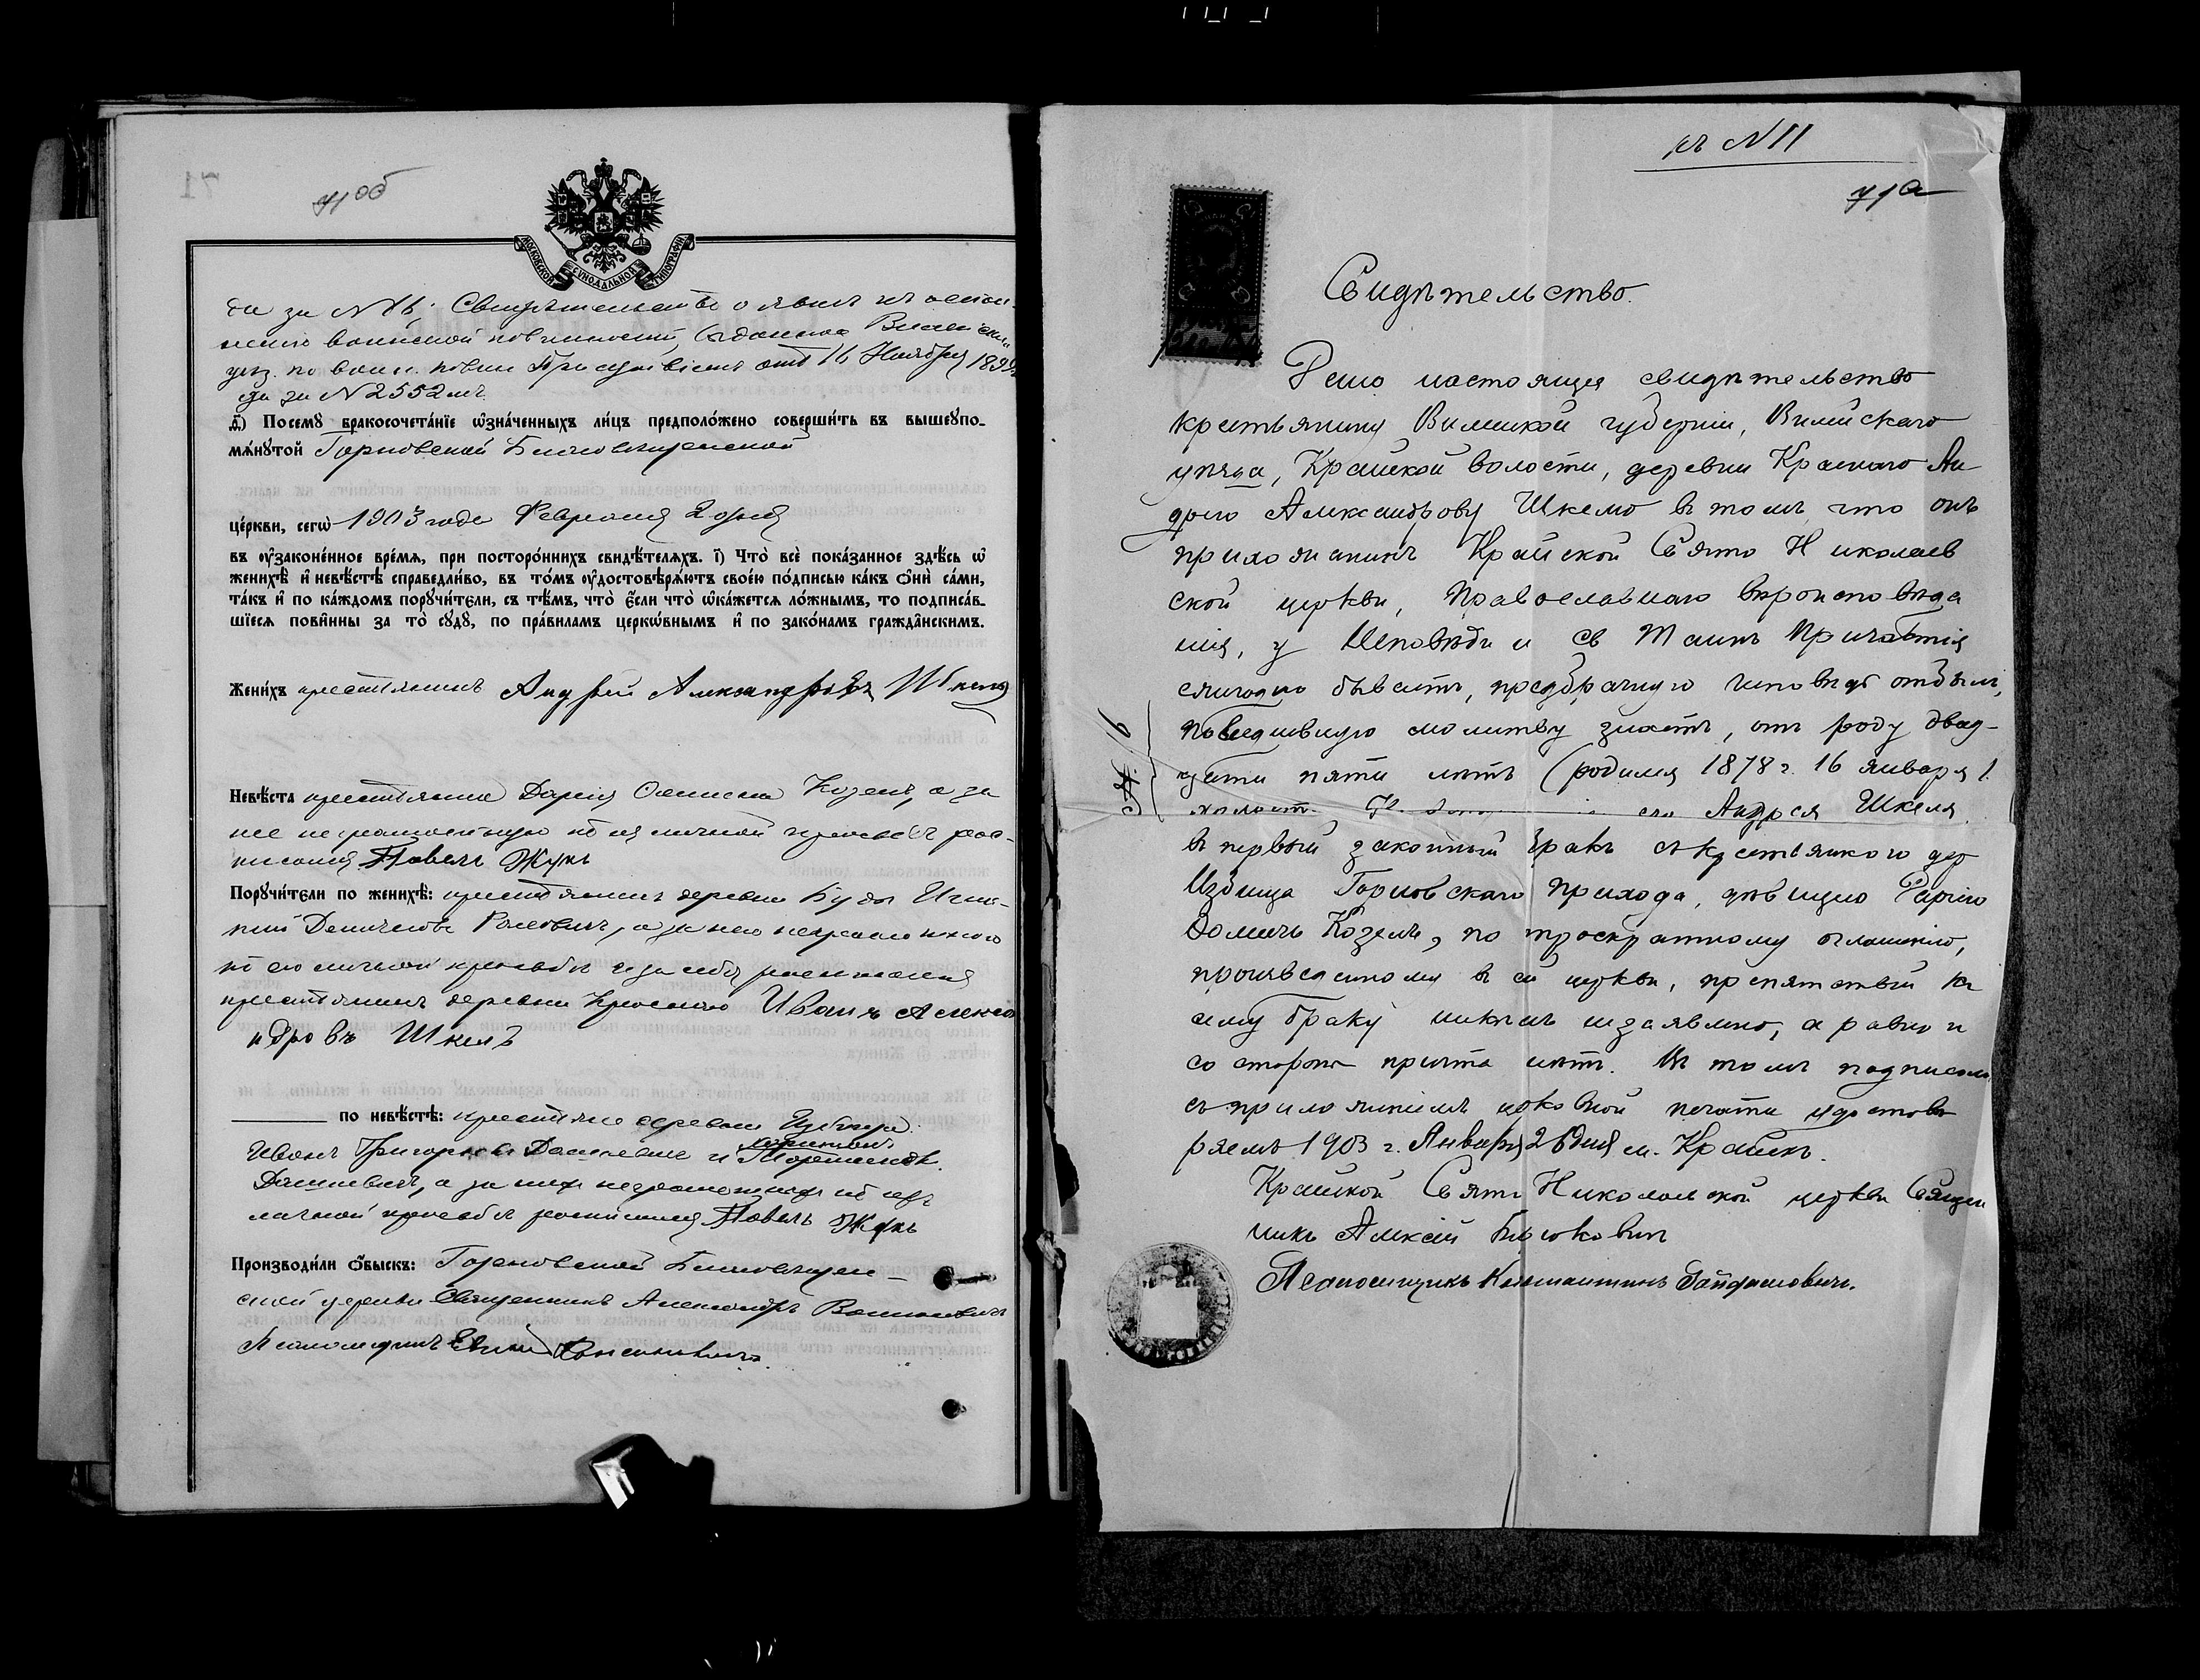 71об
МОСКОВСКОЙ СѴНОДАЛЬНОЙ ТИПОГРАФІИ
да за N 86; Свидѣтельство о явкѣ къ испол-
ненію воинской повинности, выданное Вилейским
уѣз. по воин. повин. Присутствіемъ отъ 16 Ноября 1899
да за N 2552мъ.
д҃) Посемꙋ бракосочета́нїе ѡ҆зна́ченныхъ ли́цъ предполо́жено соверши́ть въ вышеꙋпо-
мѧ́нꙋтой Горновской Благовѣщенской
це́ркви, сегѡ̀ 1903 года Февраля 2 дня
въ ᲂу҆законе́нное вре́мѧ, при посторо́ннихъ свидѣ́телѧхъ. і҃) Что̀ всѐ пока́занное здѣ́сь ѡ҆
женихѣ̀ и҆ невѣ́стѣ справедли́во, въ то́мъ ᲂу҆достовѣрѧ́ютъ свое́ю по́дписью ка́къ ѻ҆нѝ са́ми,
та́къ и҆ по ка́ждомъ порꙋчи́тели, съ тѣ́мъ, что̀ є҆́сли что̀ ѡ҆ка́жетсѧ ло́жнымъ, то подписа́в-
шїесѧ пови́нны за то̀ сꙋдꙋ̀, по пра́виламъ церкѡ́внымъ и҆ по зако́намъ гражда̂нскимъ.
Жени́хъ крестьянинъ Андрей Александровъ Шкеля
Невѣ́ста крестьянка Дарія Козелъ, а за
нее неграмотную по ея личной просьбѣ рос-
писался Павелъ Жукъ
Порꙋчи́тели по женихѣ̀: крестьянинъ деревни Буды Игна-
тій а за него неграмотнаго
по его личной просьбѣ и за себя росписался
крестьянинъ деревни Красного Иванъ Алекса
ндровъ Шкель
по невѣ́стѣ: крестьяне деревни Избища
Иванъ Григорьевъ и
Дашкевичъ, а за нихъ неграмотныхъ по ихъ
личной просьбѣ росписался Павелъ Жукъ
Производи́ли ѻ҆́быскъ: Горновской Благовѣщен-
ской церкви Священникъ Александръ
Псаломщикъ
къ N 11
71а
Свидѣтельство.
Дано настоящее свидѣтельство
крестьянину Виленской губерніи, Вилейскаго
уѣзда, Крайской волости, деревни Краснаго Ан-
дрею Александрову Шкелю въ томъ, что онъ
прихожанинъ Крайской Свято Николаев
ской церкви, Православнаго вѣроисповѣда
нія, у Исповѣди и Св Таинъ Причастія
ежегодно бываетъ, предбрачную исповѣдь отбылъ,
повседневную молитву знаетъ, отъ роду двад-
цати пяти лѣтъ (родился 1878 г. 16 января).
холостъ. его Андрея Шкеля
въ первый законный бракъ съ крестьянкою дер
Избища Горновскаго прихода, дѣвицею Дарiею
Козелъ, по троекратному оглашенію,
произведенному въ сей церкви, препятствій къ
сему браку никѣмъ незаявлено, а равно и
со стороны причта нѣтъ. Въ томъ подписомъ
съ приложеніемъ церковной печати удостовѣ
ряемъ 1903 г. Января 26 дня м. Крайскъ.
Крайской Свято Николаевской церкви Священ
никъ Алексій Бирюковичъ
Псаломщикъ Константинъ Гайдамовичъ.